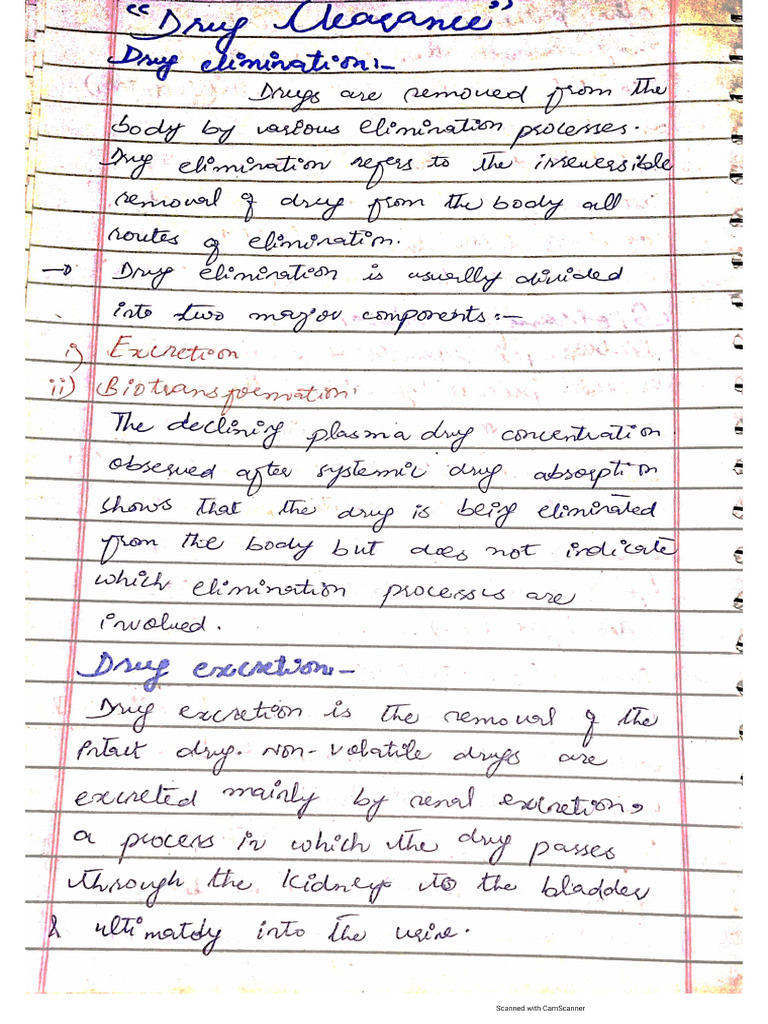 "Drug Clearance"
Drug elimination:-
Drugs are removed from the
body by various elimination processes.
Drug elimination refers to the irreversible
removal of drug from the body all
routes of elimination.
→ Drug elimination is usually divided
into two major components:-
i) Excretion
ii) Biotransformation.
The declining plasma drug concentration
observed after systemic drug absorption
shows that the drug is being eliminated
from the body but does not indicate
which elimination processes are
involved.
Drug excretion:-
Drug excretion is the removal of the
intact drug. Non-volatile drugs are
excreted mainly by renal excretion,
a process in which the drug passes
through the kidney to the bladder
& ultimately into the urine.
Scanned with CamScanner